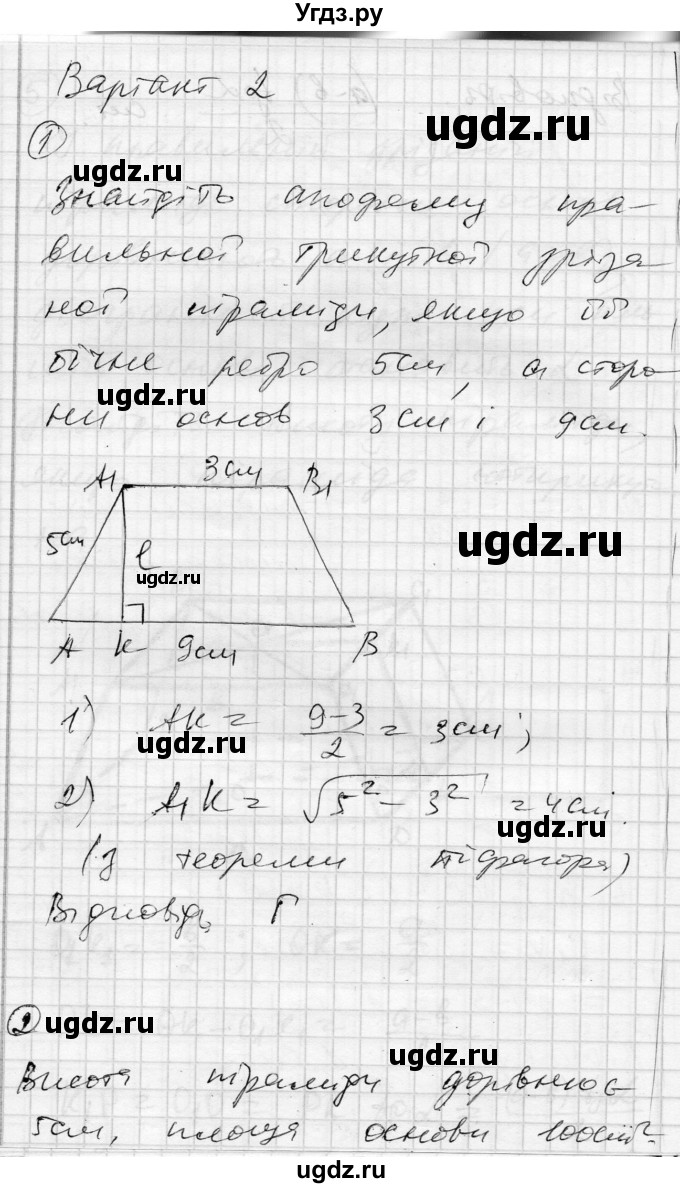 Угдз.ру
Варіант 2
ugdz.ru
1
ugdz.ru
Знайдіть апофему пра-
вильної трикутної зріза
ної піраміди, якщо її
бічне ребро 5см, а сторо
ugdz.ru
ни основ 3см і 9см.
A₁ 3см B₁
ugdz.ru
5см ℓ
ugdz.ru
A K 9см B
1) AK = (9-3)/2 = 3см;
ugdz.ru
2) A₁K = √(5² - 3²) = 4см.
ugdz.ru
(з теореми Піфагора)
Відповідь Г
2 ugdz.ru
ugdz.ru
Висота піраміди дорівнює
5см, площа основи 100см².
ugdz.ru